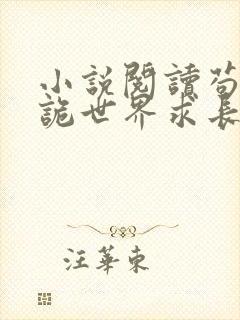 小說閱讀苟
詭世界求長
汪華東